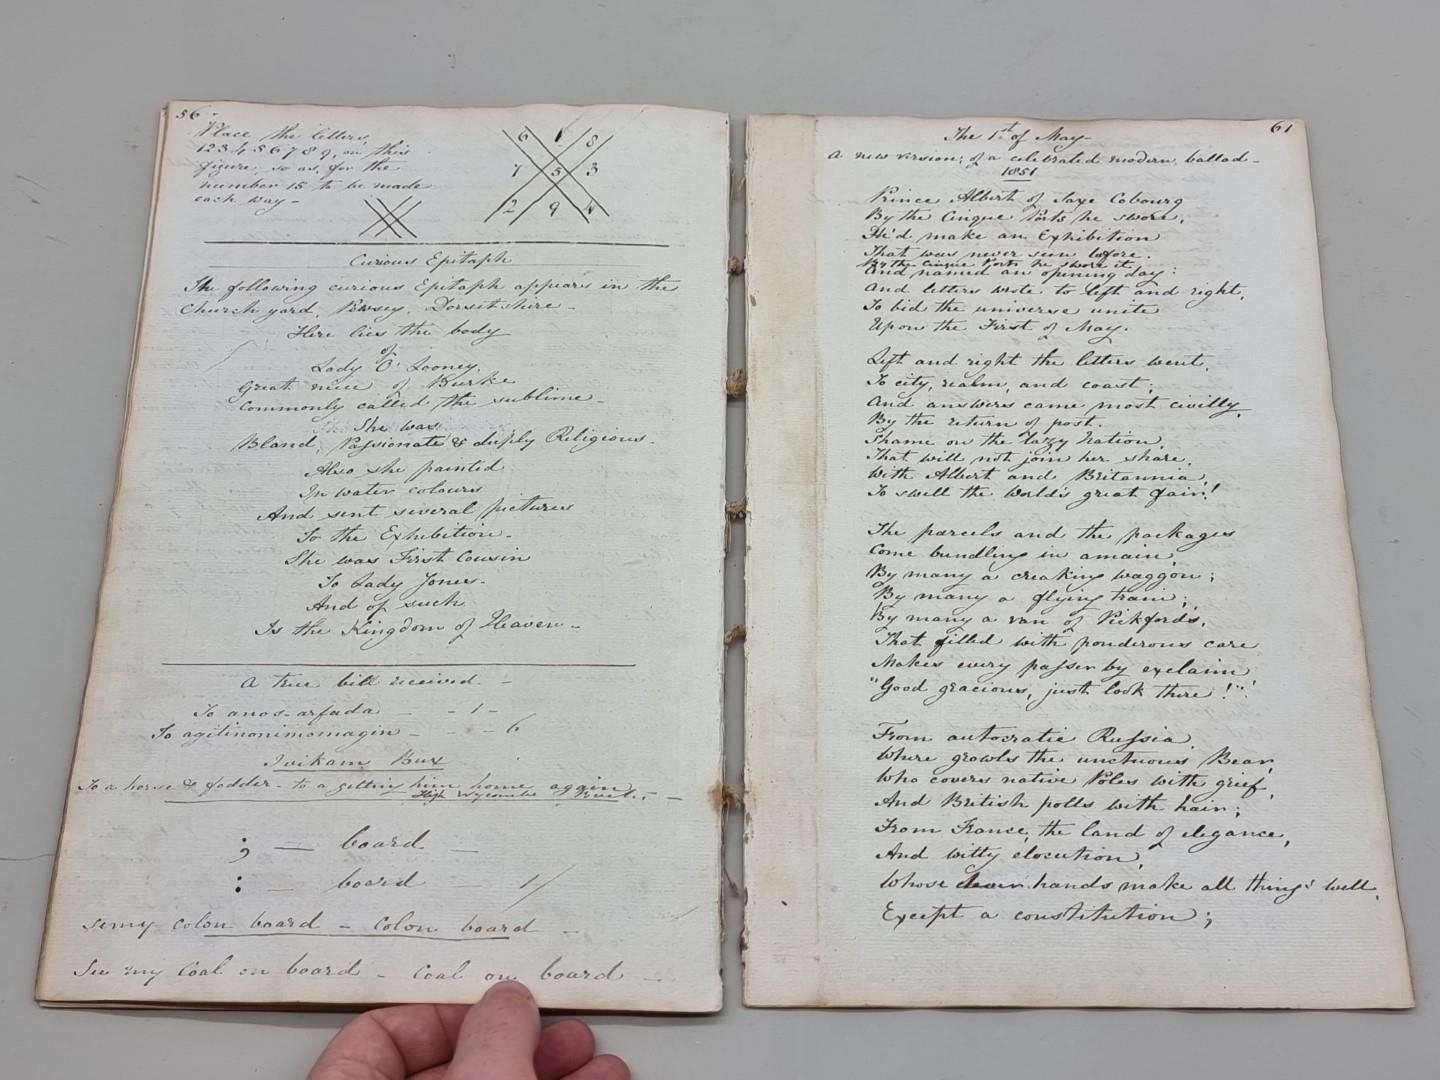 56-
Place the letters,
123456789, on this
figure, so as, for the
number 15 to be made
each way-
6 1 8
7 5 3
2 9 4
Curious Epitaph
The following curious Epitaph appears in the
Church yard, Pewsey, Dorsetshire-
Here lies the body
of
Lady O'Looney,
Great niece of Burke
Commonly called the sublime-
She was
Bland, Passionate & deeply Religious-
Also she painted
In water colours
And sent several pictures
To the Exhibition-
She was First Cousin
To Lady Jones-
And of such
Is the Kingdom of Heaven-
A true bill received-
To anos-arfada - - 1 -
To agitinonimomagin - - - 6
Ivikam Bux
To a horse & fodder- to a getting him home again
High Wycombe
; - board -
: - board - 1/
semy colon board - Colon board -
See my Coal on board - Coal on board -
61
The 1st of May-
A new version; of a celebrated modern ballad-
1851
Prince Albert of Saxe Cobourg
By the Cinque Ports he swore,
He'd make an Exhibition
That was never seen before.
By the Cinque Ports he swore it,
And named an opening day:
And letters wrote to left and right,
To bid the universe unite
Upon the First of May.
Left and right the letters went,
To city, realm, and coast;
And answers came most civilly,
By the return of post.
Shame on the Lazzy Nation,
That will not join her share,
With Albert and Britannia,
To swell the World's great fair!
The parcels and the packages
Come bundling in amain,
By many a creaking waggon;
By many a flying train;
By many a van of Pickfords,
That filled with ponderous care
Makes every passer by exclaim,
"Good gracious, just look there!"
From autocratic Russia,
Where growls the unctuous Bear,
Who covers native Poles with grief,
And British polls with hair;
From France, the land of elegance,
And witty elocution,
Whose clever hands make all things well,
Except a constitution;